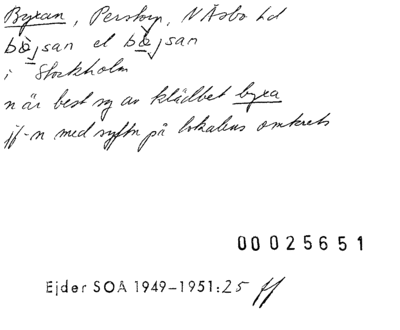 Byxan, Perstorp, N Åsbo hd
bø̀jsan el bø̀jsan
i Stockholm
n är best sg av klädbet byxa
jf-n med syftn på lokalens omkrets
00025651
Ejder SOÅ 1949–1951:25 ff